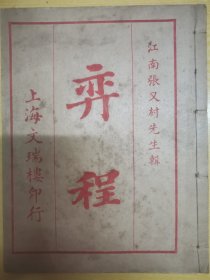 江南張又村先生輯
弈程
上海文瑞樓印行